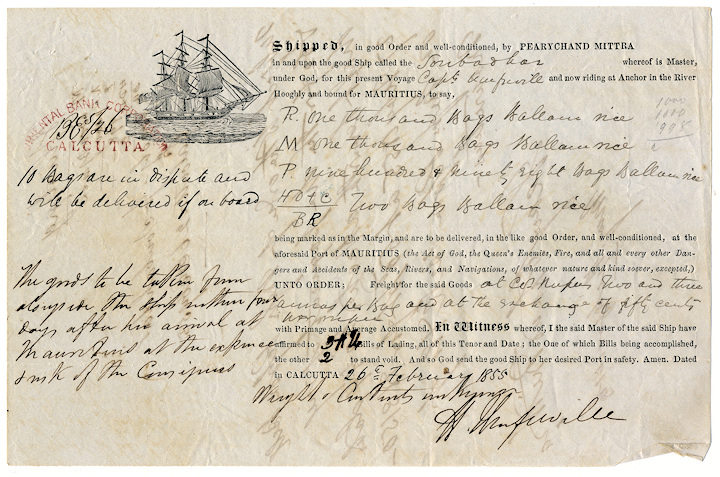 Shipped, in good Order and well-conditioned, by PEARYCHAND MITTRA
in and upon the good Ship called the whereof is Master,
under God, for this present Voyage Capt and now riding at Anchor in the River
Hooghly and bound for MAURITIUS, to say,
ORIENTAL BANK CORPORATION
CALCUTTA
R. One thousand Bags Ballam rice
M one thousand Bags Ballam rice
P. nine hundred & ninety eight Bags Ballam rice
BR Two Bags Ballam rice
1000
1000
998
2
10 Bags are in dispute and
will be delivered if on board
being marked as in the Margin, and are to be delivered, in the like good Order, and well-conditioned, at the
aforesaid Port of MAURITIUS (the Act of God, the Queen's Enemies, Fire, and all and every other Dan-
gers and Accidents of the Seas, Rivers, and Navigations, of whatever nature and kind soever, excepted,)
UNTO ORDER; Freight for the said Goods at Co's Rupees Two and three
annas per Bag and at the exchange of fifty cents
per rupee
with Primage and Average Accustomed. In Witness whereof, I the said Master of the said Ship have
affirmed to Bills of Lading, all of this Tenor and Date; the One of which Bills being accomplished,
the other 2 to stand void. And so God send the good Ship to her desired Port in safety. Amen. Dated
in CALCUTTA 26th February 1855
The goods to be taken from
alongside the ship within four
days after her arrival at
Mauritius at the expense
& risk of the Consignees
Weight & Contents unknown